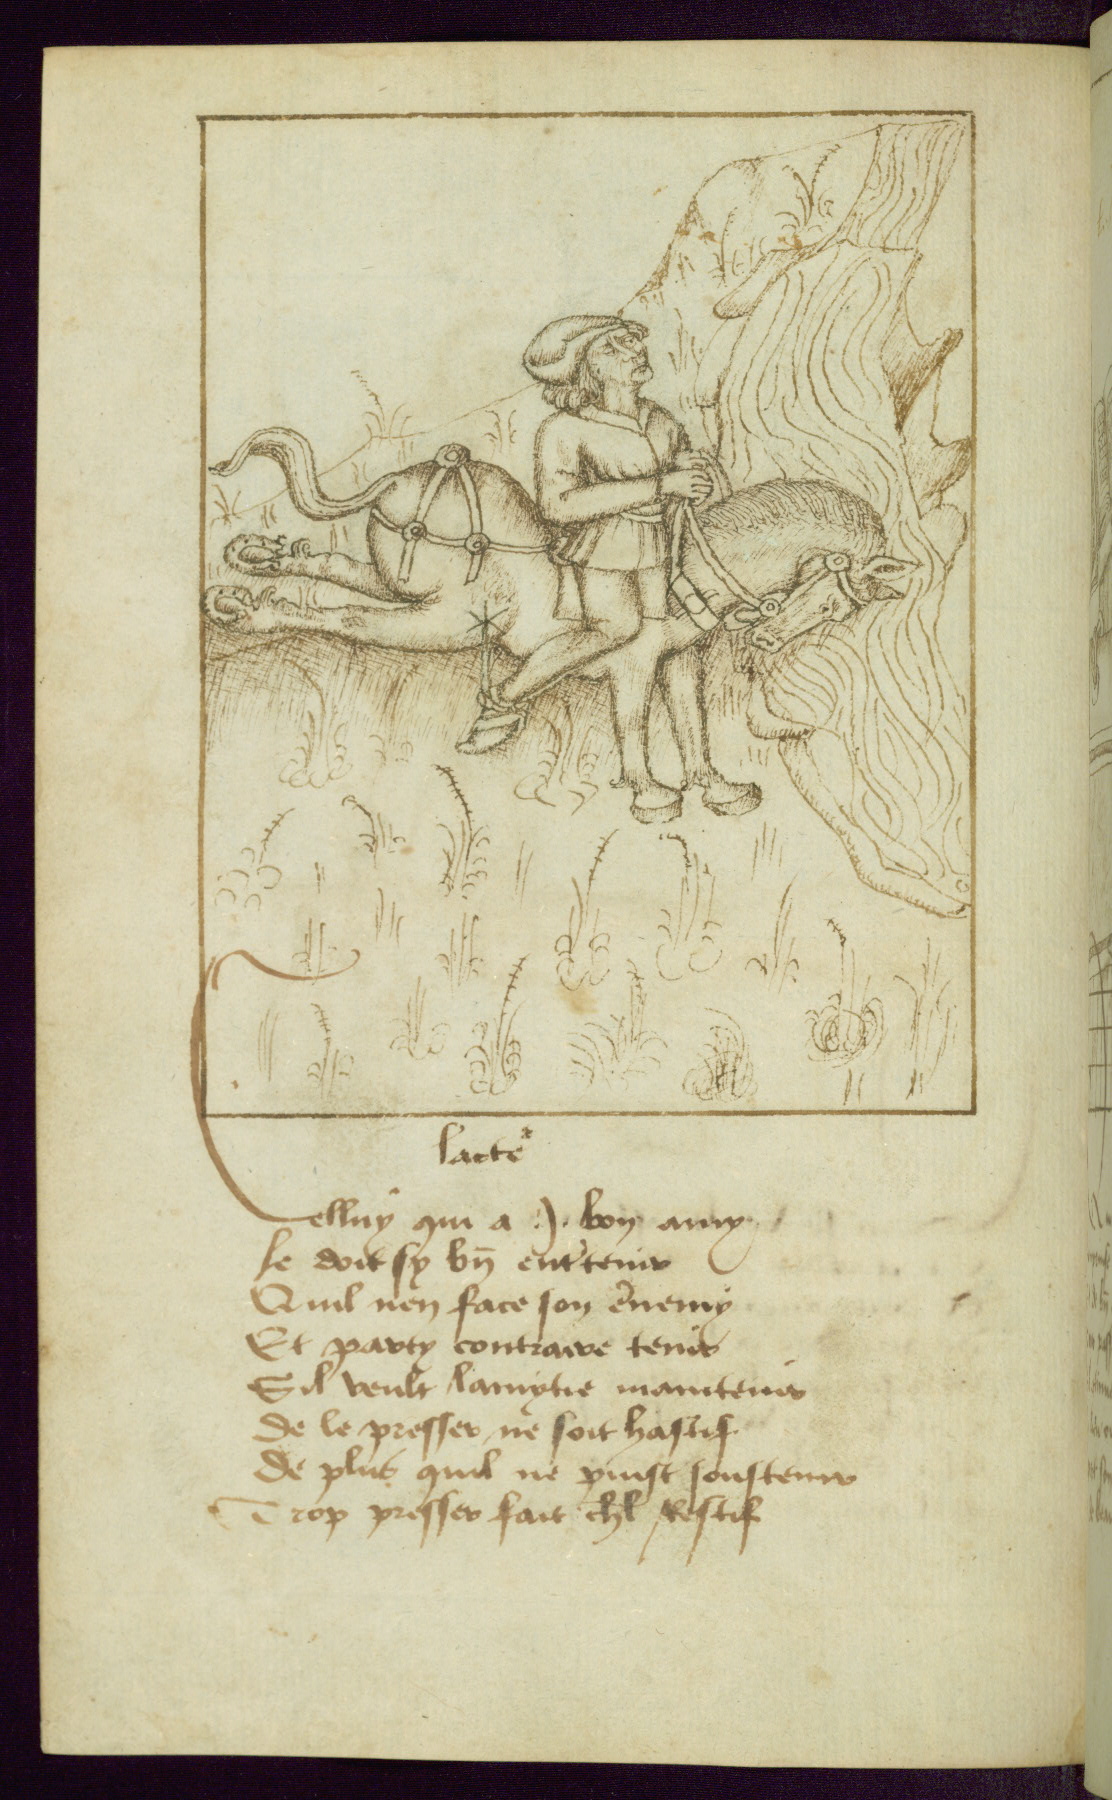 lacteᵉ
Celluy qui a .j. bon amy
le doit sy bn̄ ent'tenir
Quil nen face son ennemy
Et party contraire tenir
Sil veult lamytie maintenir
de le presser ne soit hastif
de plus quil ne puist soustenir
Trop presser fait chl restif